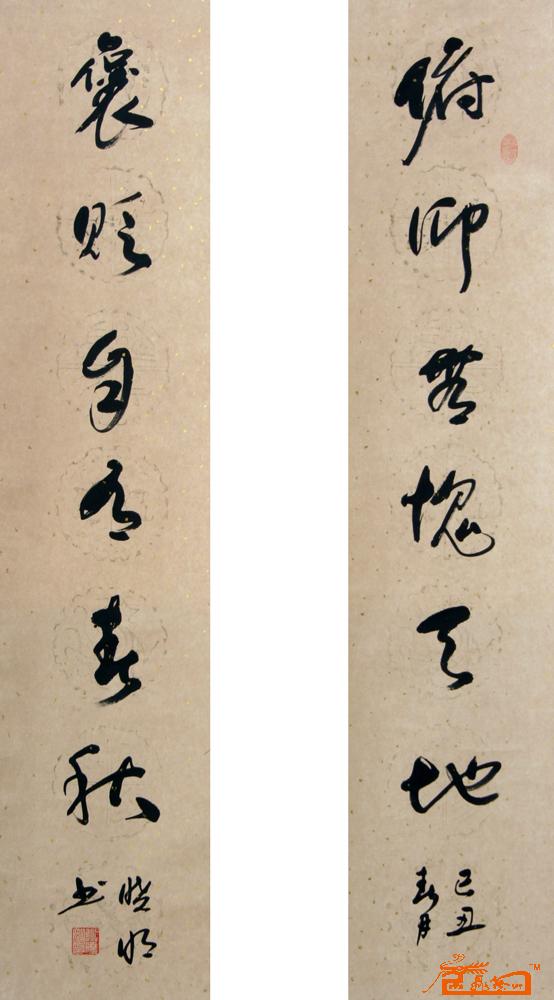 俯仰無愧天地
己丑
春月
褒貶自有春秋
曉明
书